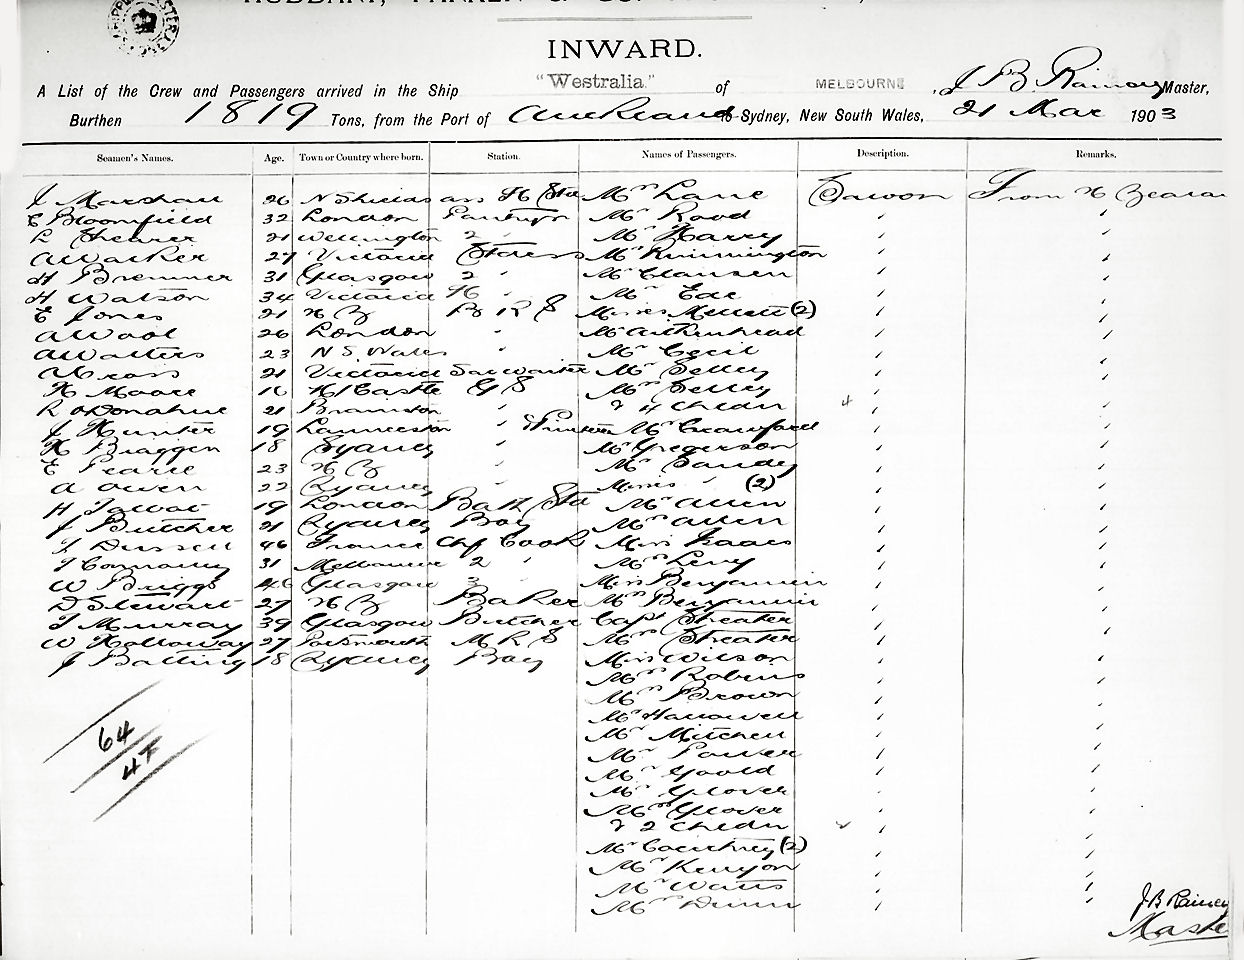 INWARD.
"Westralia." of MELBOURNE, J B Rainey Master,
A List of the Crew and Passengers arrived in the Ship
Burthen 1819 Tons, from the Port of Auckland to Sydney, New South Wales, 21 Mar 1903
Seamen's Names. Age. Town or Country where born. Station. Names of Passengers. Description. Remarks.
J Marshall 26 N Shields Mrs Lane Saloon From N Zealand
E Bloomfield 32 London Pantryn Mr Rood " "
L Shearer 21 Wellington 2 " Mr Harry " "
A Walker 27 Victoria Stores Mr Rinnington " "
H Bremner 31 Glasgow 2 " Mr Clausen " "
H Watson 34 Victoria Mr Ede " "
E Jones 21 N Z B R S Misses (2) " "
A Wool 26 London " Mr Aitkenhead " "
A Walters 23 N S Wales " Mr Cecil " "
21 Victoria Mr Selley " "
H Moore 16 N/Castle G S Mrs Selley " "
R O'Donahue 21 " & 4 Chldn 4 " "
J Hunter 19 Launceston " Mr Crawford " "
H Braggen 18 Sydney " Mr Gregerson " "
E Pearce 23 N Z " Mr Sandy " "
A Owen 22 Sydney " Misses " (2) " "
H Talbot 19 London Bath Std Mr Allen " "
J Butcher 21 Sydney Boy Mrs Allen " "
46 France Chf Cook Miss Isaacs " "
31 Melbourne 2 " Mr Levy " "
W Briggs 46 Glasgow 3 " Miss Benjamin " "
D Stewart 27 N Z Baker Mrs Benjamin " "
T Murray 39 Glasgow Butcher Capt Streater " "
W Holloway 27 Portsmouth M R S Mrs Streater " "
J Batting 18 Sydney Boy Miss Wilson " "
Mrs Robins " "
Mrs Brown " "
Mr Hallowell " "
Mr Mitchell " "
Mr Power " "
Mr Goold " "
Mr Glover " "
Mrs Glover " "
& 2 Chldn " "
Mr Courtney (2) " "
Mrs Kenyon " "
Mr Watts " "
Mr Dunn " "
64
47
J B Rainey
Master